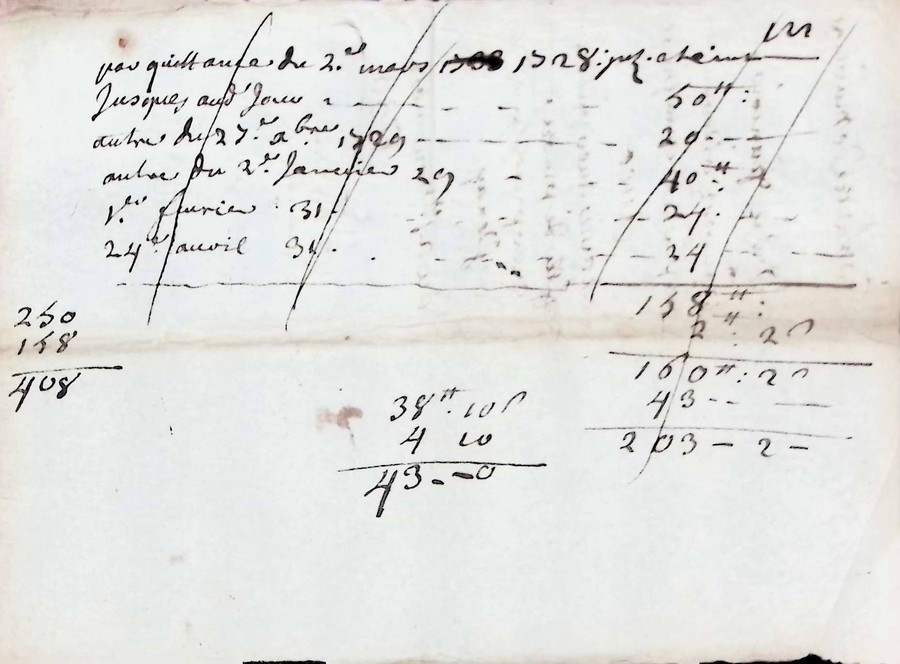 par quittance du 2.e mars 1728
Jusques aud' Jour - - - - - 50tt :
autre du 27.e xbre 1729 - - - - 20 - -
autre du 2.e Janvier 29 - - 40tt
1.er fevrier 31 - - - 24 -
24.e avril 31 - - - 24
158tt :
2tt : 2s
160tt : 2s
43 - - -
203 - 2 -
250
158
408
38tt 10s
4 10
43 - - 0